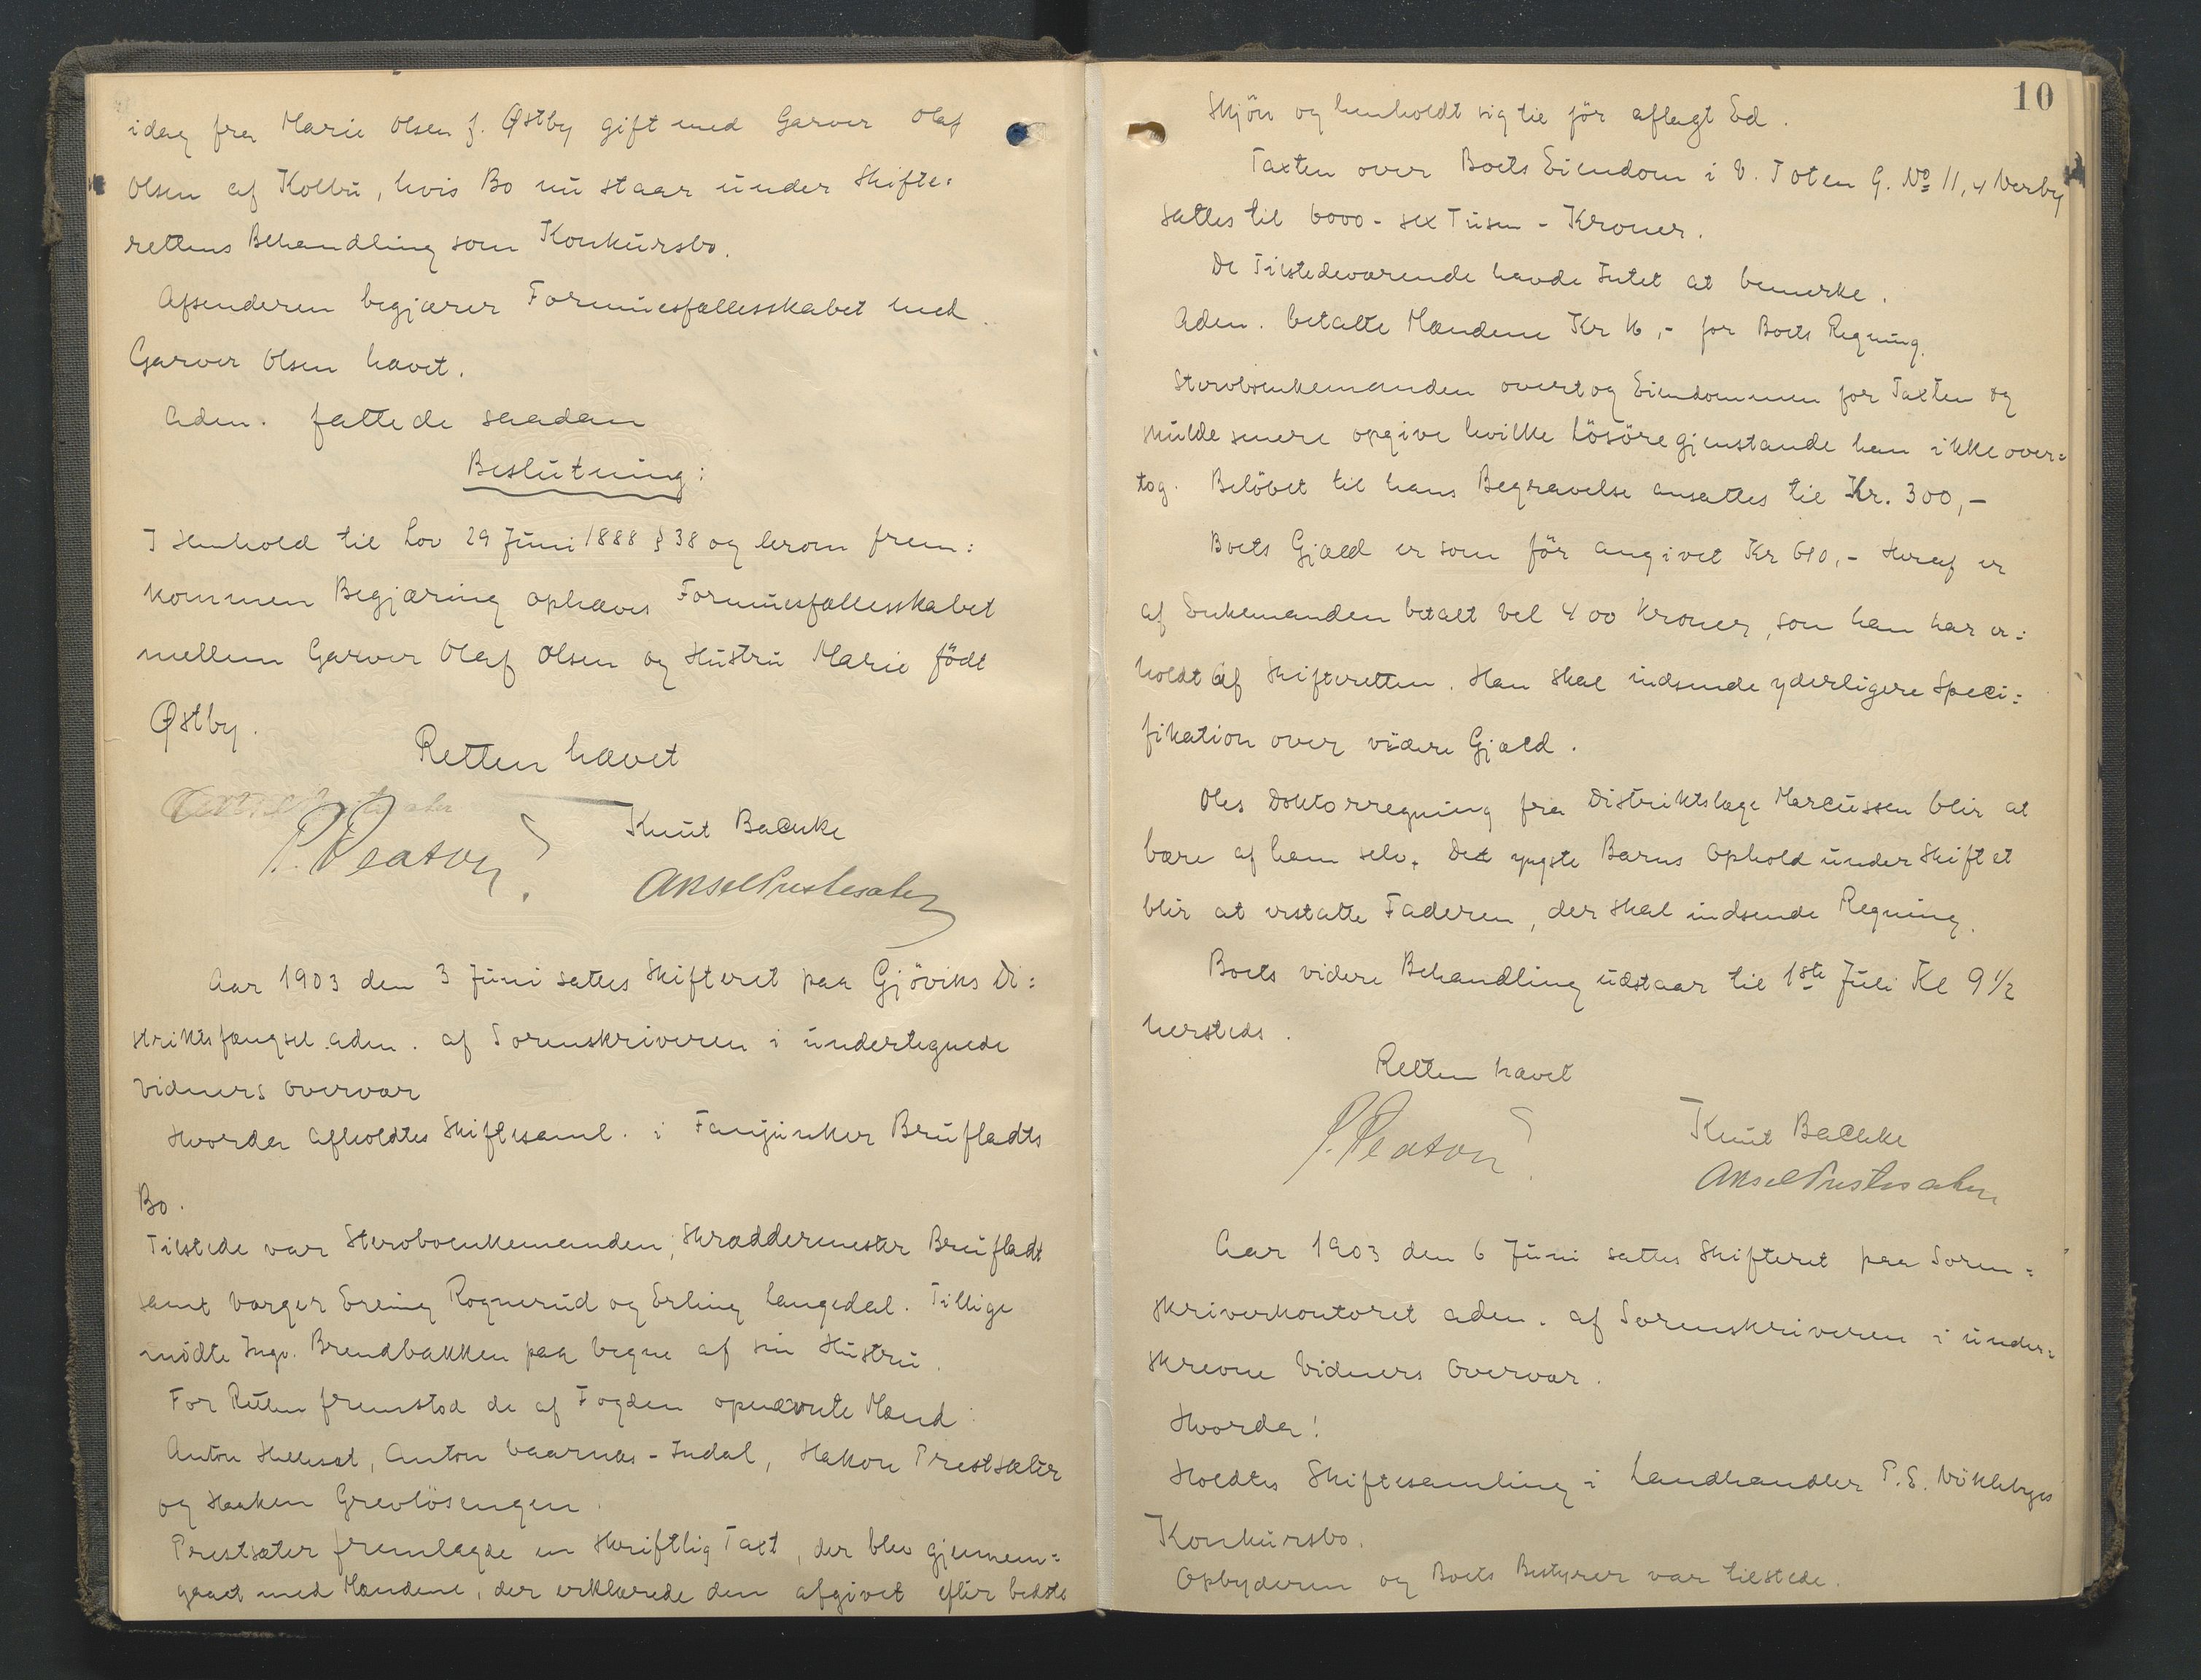 idag fra Marie Olsen f. Østby gift med Garver Olaf
Olsen af Kolbu, hvis Bo nu staar under Skifte=
rettens Behandling som Konkursbo.
Afsenderen begjærer Formuesfællesskabet med
Garver Olsen hævet.
Adm. fattede saadan
Beslutning:
I Henhold til Lov 29 Juni 1888 § 38 og herom frem=
kommen Begjæring ophæves Formuesfællesskabet
mellem Garver Olaf Olsen og Hustru Marie født
Østby.
Retten hævet
Knut Bachke
Aksel Prestesæter
Aar 1903 den 3 Juni sattes Skifteret paa Gjøviks Di=
striktsfængsel adm. af Sorenskriveren i undertegnede
Vidners Overvær
Hvorda afholdtes Skiftesaml. i Fanejunker Brufladts
Bo.
Tilstede var Stervboenkemanden, Skræddermester Brufladt
samt Værger Erling Rognerud og Erling Langedal. Tillige
mødte Ingv. Brendbakken paa vegne af sin Hustru.
For Retten fremstod de af Fogden opnævnte Mænd:
Anton Helleset, Anton Vaarnæs-Indal, Hakon Prestsæter
og Haaken Grevløsengen.
Prestsæter fremlagde en skriftlig Taxt, der blev gjennem=
gaaet med Mændene, der erklærede den afgivet efter bedste
10
Skjøn og henholdt sig til før aflagt Ed.
Taxten over Boets Eiendom i V. Toten G. No 11,4 Verby
sattes til 6000 - sex Tusen - Kroner.
De Tilstedeværende havde Intet at bemerke.
Adm. betalte Mændene Kr 16,- for Boets Regning.
Stervboenkemanden overtog Eiendommen for Taxten og
skulde senere opgive hvilke Løsøregjenstande han ikke over=
tog. Beløbet til hans Begravelse ansattes til Kr. 300,-
Boets Gjæld er som før angivet Kr 610,- Heraf er
af Enkemanden betalt vel 400 Kroner, som han har er=
holdt af Skifteretten. Han skal indsende yderligere Speci=
fikation over videre Gjæld.
Oles Doktorregning fra Distriktslæge Marcussen blir at
bære af ham selv. Det yngste Barns Ophold under Skiftet
blir at erstatte Faderen, der skal indsende Regning.
Boets videre Behandling udstaar til 1ste Juli Kl 9 1/2
hersteds.
Retten hævet
Knut Bachke
Aksel Prestesæter
Aar 1903 den 6 Juni sattes Skifteret paa Soren=
skriverkontoret adm. af Sorenskriveren i under=
skrevne Vidners Overvær.
Hvorda!
Holdtes Skiftesamling i Landhandler P. E. Viklebyes
Konkursbo.
Opbyderen og Boets Bestyrer var tilstede.